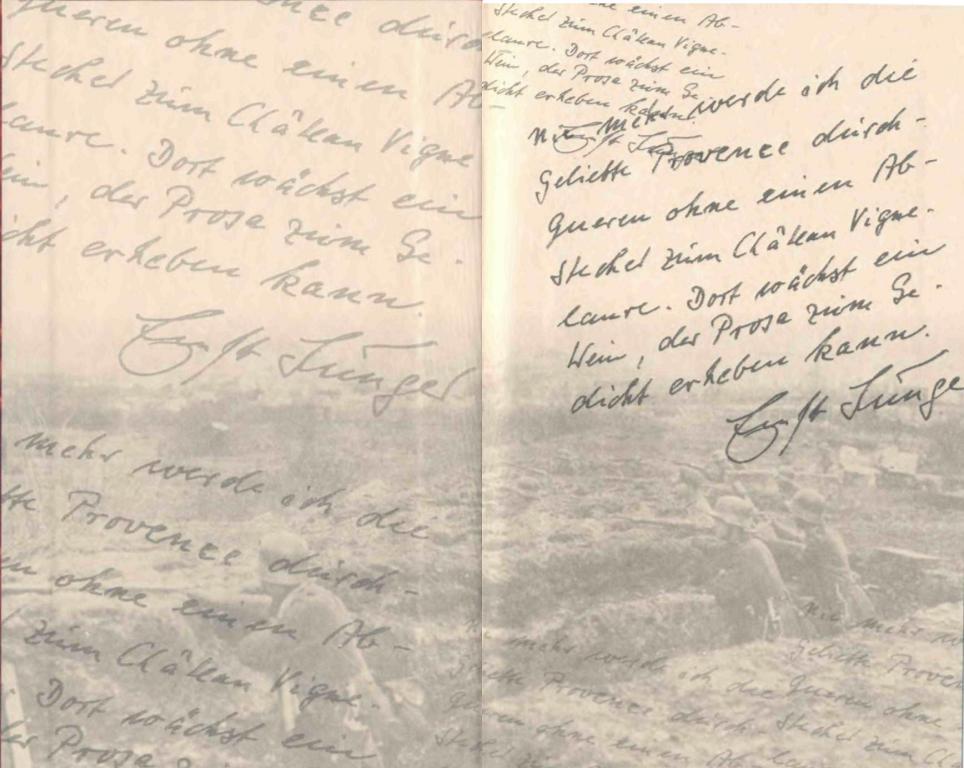 queren ohne einen Ab-
stecher zum Château Vigne
laure. Dort wächst ein
ein, der Prosa zum Ge-
icht erheben kann.
Ernst Jünger
mehr werde ich die
bte Provence durch-
n ohne einen Ab-
zum Château Vigne-
Dort wächst ein
der Prosa
ne einen Ab-
stecher zum Château Vigne-
laure. Dort wächst ein
Wein, der Prosa zum Ge-
dicht erheben kann.
Nie mehr werde ich die
geliebte Provence durch-
queren ohne einen Ab-
stecher zum Château Vigne-
laure. Dort wächst ein
Wein, der Prosa zum Ge-
dicht erheben kann.
Ernst Jünge
Nie mehr
geliebte Proven
Nie mehr werde ich die
geliebte Provence durch-
queren ohne einen Ab-
queren ohne
stecher zum Châ